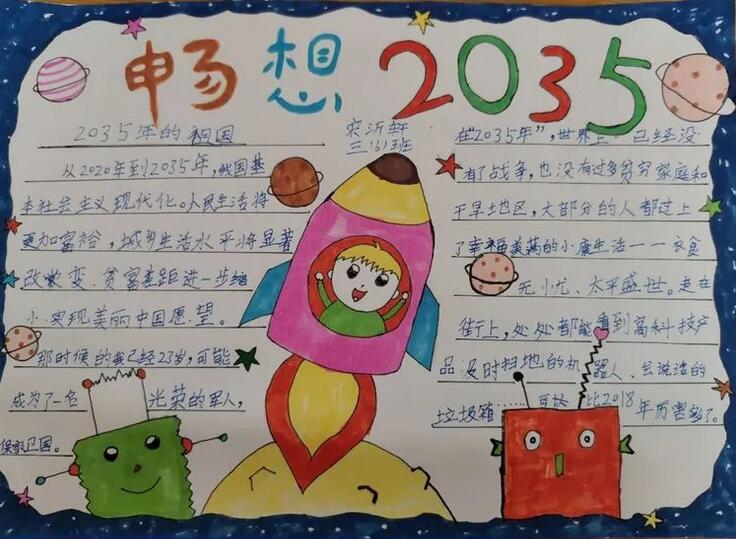 畅想2035
2035年的祖国
宋沂轩
三(3)班
从2020年到2035年,我国基
本社会主义现代化。人民生活将
更加富裕,城乡生活水平将显著
改变、贫富差距进一步缩
小.实现美丽中国愿望。
那时候的我已经23岁,可能
成为了一名光荣的军人,
保家卫国。
在"2035年",世界上已经没
有了战争,也没有过多贫穷家庭和
干旱地区,大部分的人都过上
了幸福美满的小康生活——衣食
无小忧、太平盛世。走在
街上,处处都能看到高科技产
品.及时扫地的机器人、会说话的
垃圾箱……可以比2018年厉害多了。